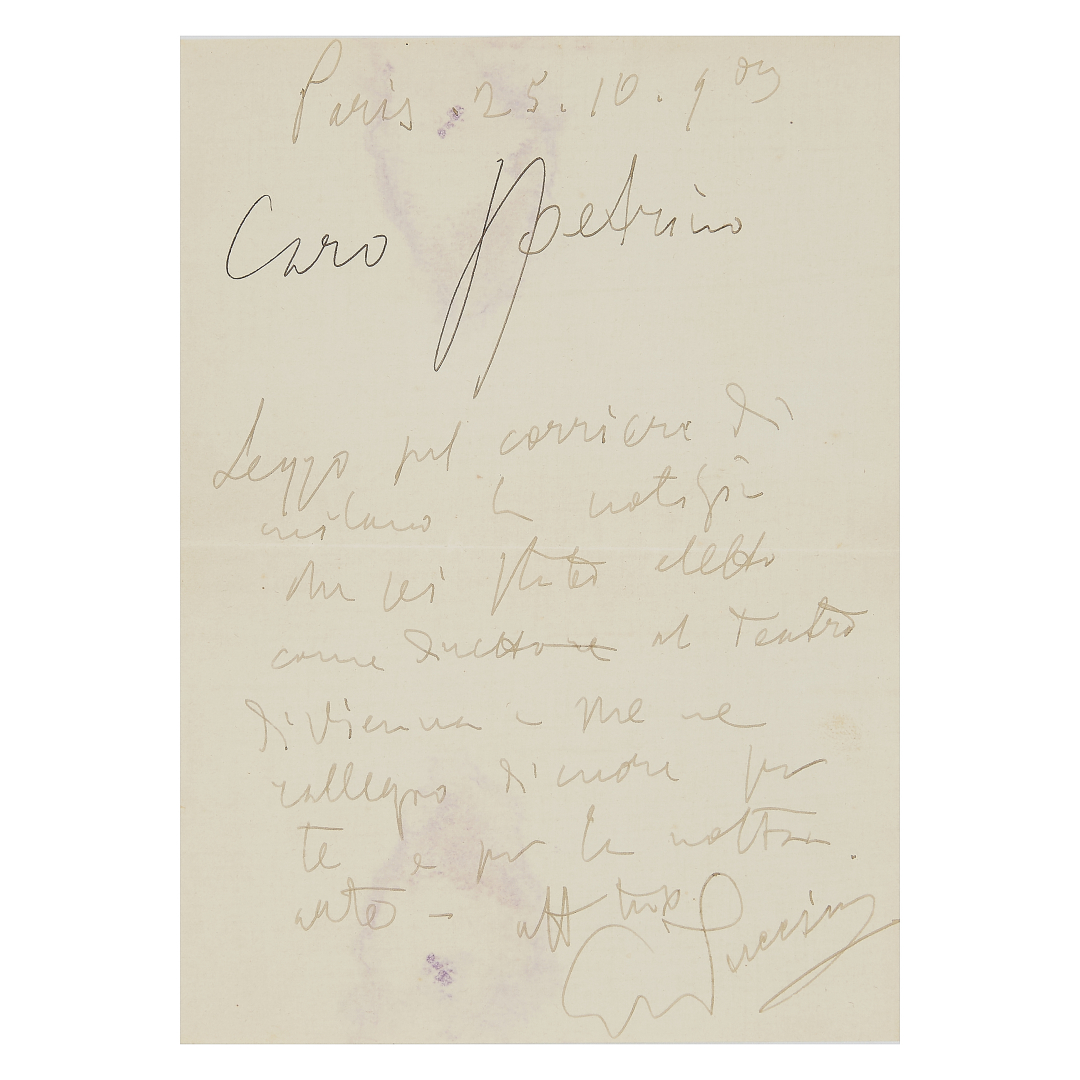 Paris. 25.10.903
Caro Spetrino
Leggo sul corriere di
milano la notizia
che sei stato eletto
come direttore al Teatro
di Vienna e me ne
rallegro di cuore per
te e per la nostra
arte - aff tuo
GPuccini